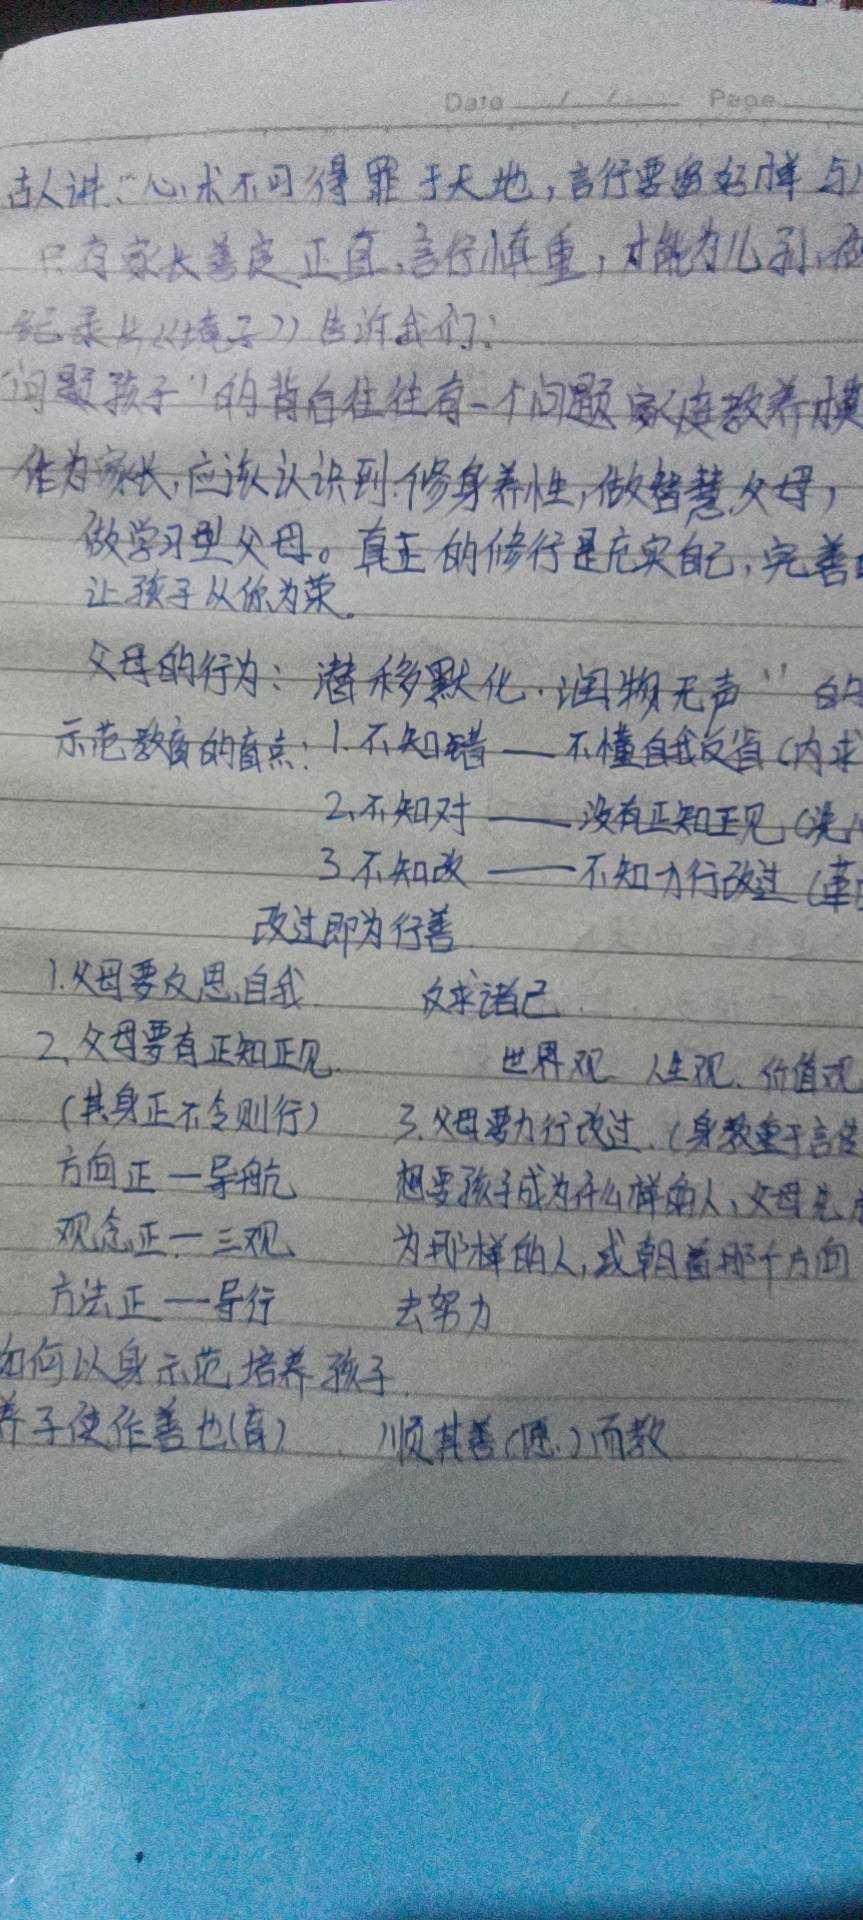 Date / / Page
古人讲:"心术不可得罪于天地,言行要留好样与
只有家长善良正直,言行慎重,才能为儿孙
纪录片《镜子》告诉我们:
"问题孩子"的背后往往有一个问题家庭教养模
作为家长,应该认识到:修身养性,做智慧父母,
做学习型父母。真正的修行是充实自己,完善
让孩子从你为荣。
父母的行为:潜移默化·润物无声" 的
示范教育的盲点:1.不知错——不懂自我反省(内求
2、不知对——没有正知正见(洗
3.不知改——不知力行改过(革
改过即为行善.
1.父母要反思自我. 反求诸己.
2、父母要有正知正见. 世界观、人生观、价值观
(其身正不令则行) 3.父母要力行改过.(身教重于言传
方向正—导航 想要孩子成为什么样的人,父母先
观念正—三观、 为那样的人,或朝着那个方向
方法正—导行 去努力
如何以身示范培养孩子.
养子使作善也(育) 顺其善(愿)而教